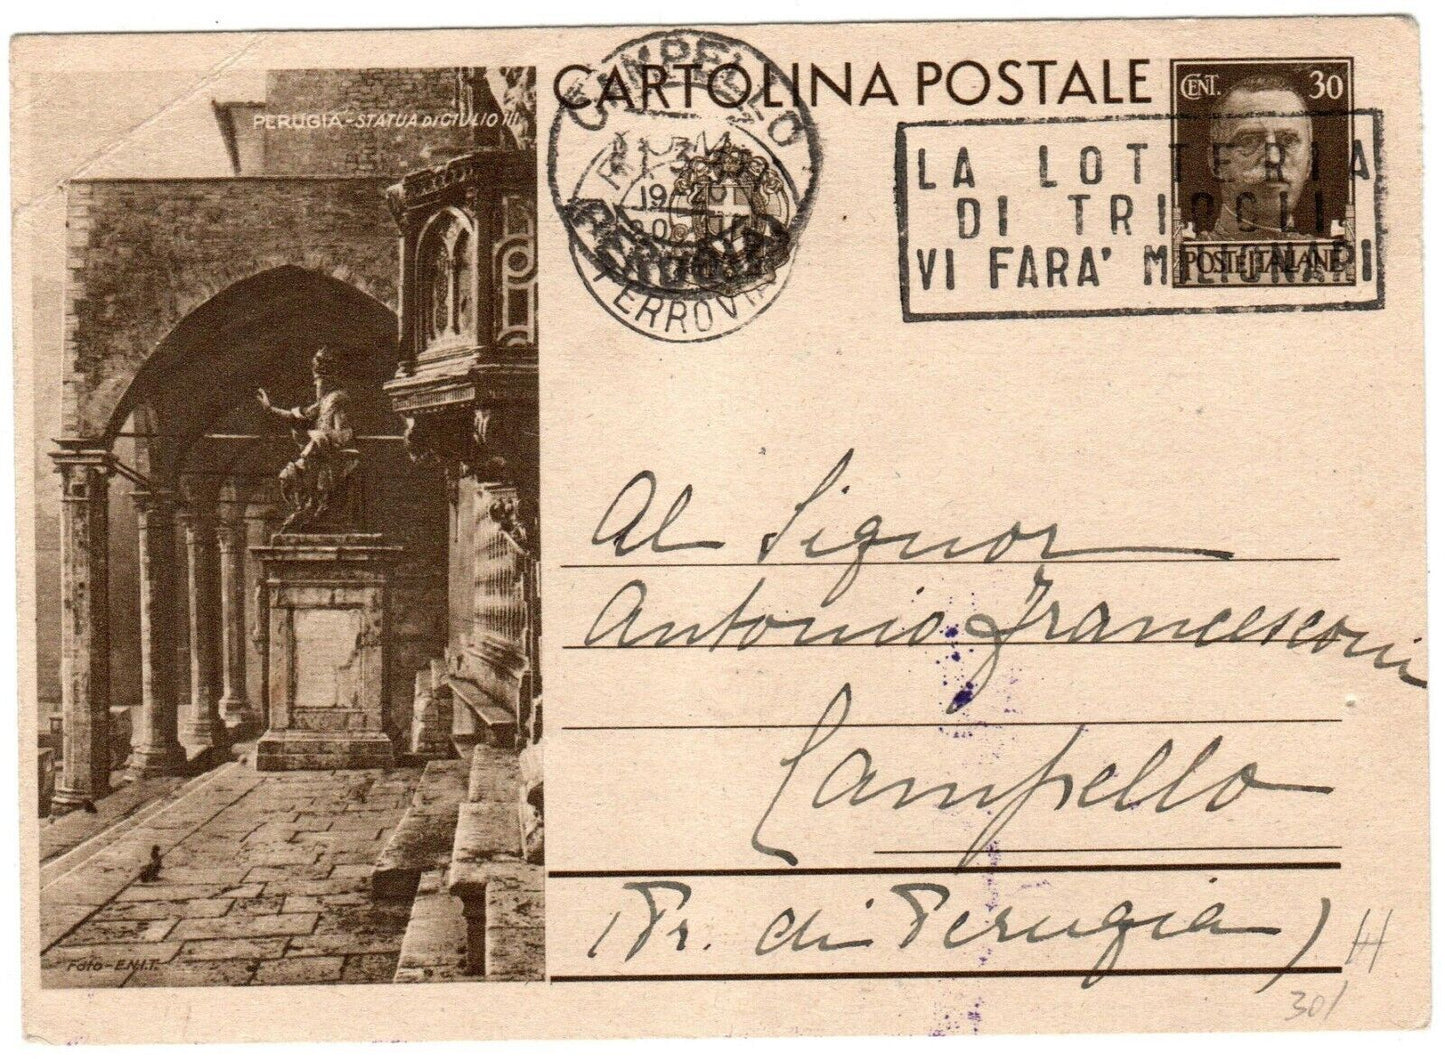 PERUGIA - STATUA DI GIULIO III.
FOTO - E.N.I.T.
CARTOLINA POSTALE
CENT. 30
POSTE ITALIANE
CAMPELLO
PERUGIA
FERROVIA
19
LA LOTTERIA
DI TRIPOLI
VI FARA' MILIONARI
Al Signor
Antonio Francesconi
Campello
(Pr. di Perugia)
30/